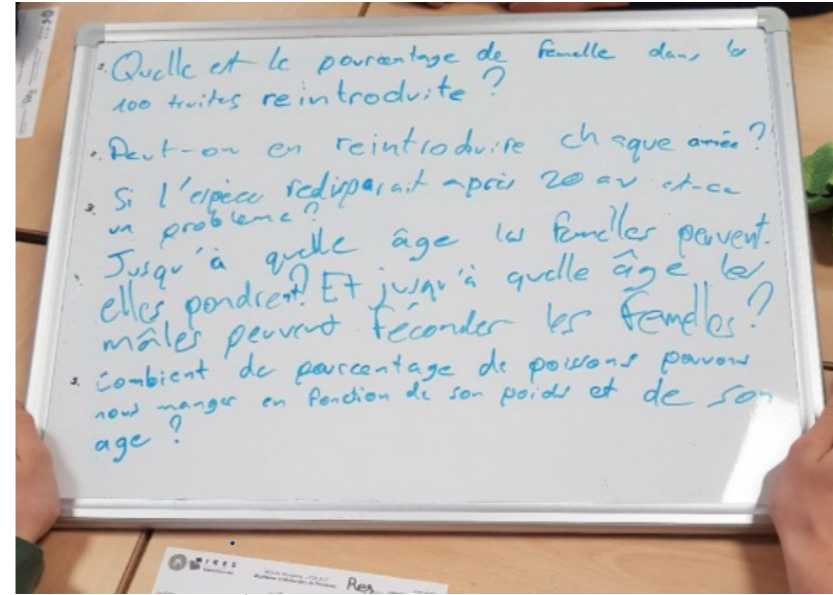 Quelle est le pourcentage de femelle dans la
100 truites reintroduite ?
Peut-on en reintroduire chaque année ?
Si l'espèce redisparait après 20 an est-ce
un probleme ?
Jusqu'à quelle âge les femelles peuvent-
elles pondrent ? Et jusqu'à quelle âge les
mâles peuvent féconder les femelles ?
Combient de pourcentage de poissons pouvons
nous manger en fonction de son poids et de son
age ?
IRES
Reg